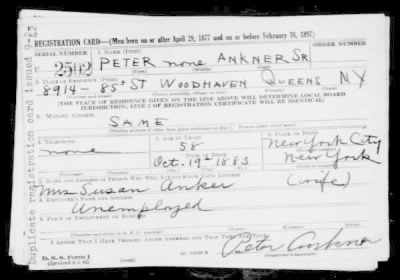 REGISTRATION CARD—(Men born on or after April 28, 1877 and on or before February 16, 1897)
SERIAL NUMBER 1. NAME (Print) ORDER NUMBER
2592 PETER none ANKNER Sr
2. PLACE OF RESIDENCE (Print)
8914 - 85th ST WOODHAVEN QUEENS NY
[THE PLACE OF RESIDENCE GIVEN ON THE LINE ABOVE WILL DETERMINE LOCAL BOARD
JURISDICTION; LINE 2 OF REGISTRATION CERTIFICATE WILL BE IDENTICAL]
3. MAILING ADDRESS
SAME
4. TELEPHONE 5. AGE IN YEARS 6. PLACE OF BIRTH
none 58 New York City
DATE OF BIRTH
Oct. 19 1883 New York
7. NAME AND ADDRESS OF PERSON WHO WILL ALWAYS KNOW YOUR ADDRESS
Mrs Susan Anker (wife)
8. EMPLOYER'S NAME AND ADDRESS
Unemployed
9. PLACE OF EMPLOYMENT OR BUSINESS
I AFFIRM THAT I HAVE VERIFIED ABOVE ANSWERS AND THAT THEY ARE TRUE.
D. S. S. Form 1
Peter Ankner
Duplicate registration card issued